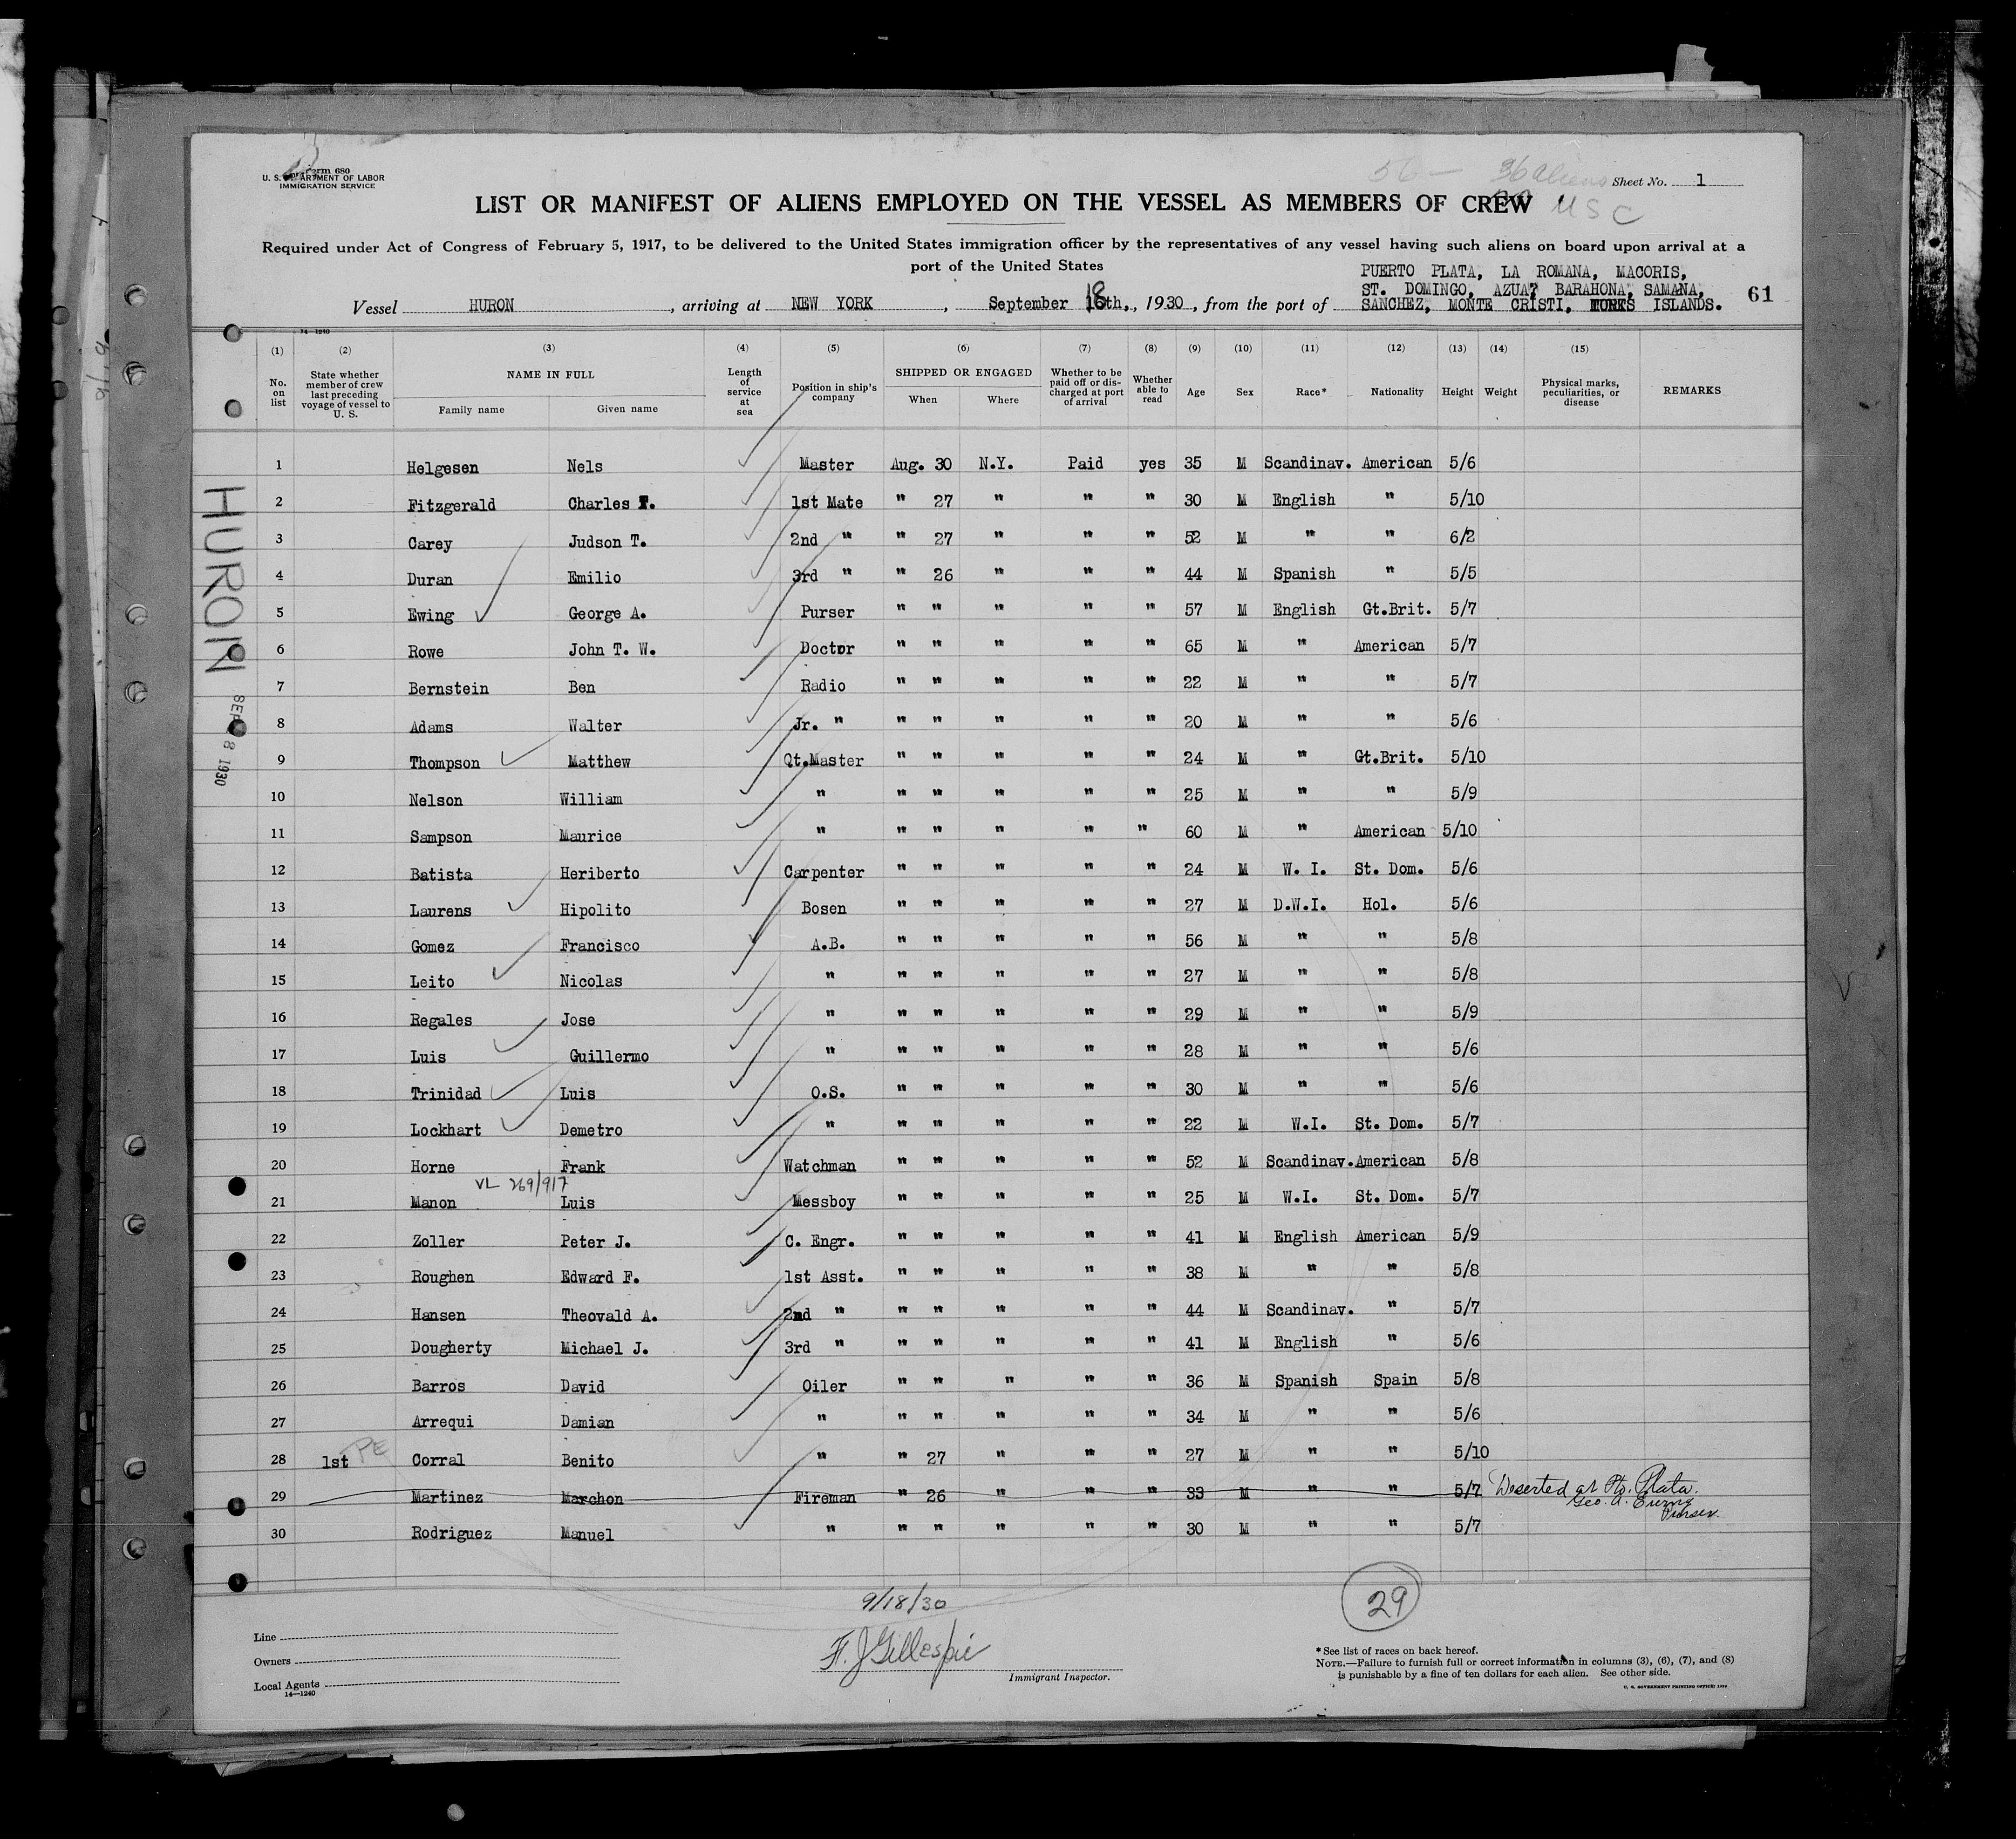 Form 680
U. S. DEPARTMENT OF LABOR
IMMIGRATION SERVICE
56 — 36 aliens
Sheet No. 1
USC
LIST OR MANIFEST OF ALIENS EMPLOYED ON THE VESSEL AS MEMBERS OF CREW
Required under Act of Congress of February 5, 1917, to be delivered to the United States immigration officer by the representatives of any vessel having such aliens on board upon arrival at a
port of the United States
PUERTO PLATA, LA ROMANA, MACORIS,
ST. DOMINGO, AZUA, BARAHONA, SAMANA,
Vessel HURON, arriving at NEW YORK, September 18th, 1930, from the port of SANCHEZ, MONTE CRISTI, TURKS ISLANDS.
61
14-1240
(1) (2) (3) (4) (5) (6) (7) (8) (9) (10) (11) (12) (13) (14) (15)
No. on list
State whether member of crew last preceding voyage of vessel to U. S.
NAME IN FULL
Family name
Given name
Length of service at sea
Position in ship's company
SHIPPED OR ENGAGED
When
Where
Whether to be paid off or discharged at port of arrival
Whether able to read
Age
Sex
Race*
Nationality
Height
Weight
Physical marks, peculiarities, or disease
REMARKS
1 Helgesen Nels Master Aug. 30 N.Y. Paid yes 35 M Scandinav. American 5/6
2 Fitzgerald Charles F. 1st Mate " 27 " " " 30 M English " 5/10
3 Carey Judson T. 2nd " " 27 " " " 52 M " " 6/2
4 Duran Emilio 3rd " " 26 " " " 44 M Spanish " 5/5
5 Ewing George A. Purser " " " " " 57 M English Gt.Brit. 5/7
6 Rowe John T. W. Doctor " " " " " 65 M " American 5/7
7 Bernstein Ben Radio " " " " " 22 M " " 5/7
8 Adams Walter Jr. " " " " " " 20 M " " 5/6
9 Thompson Matthew Qt.Master " " " " " 24 M " Gt.Brit. 5/10
10 Nelson William " " " " " " 25 M " " 5/9
11 Sampson Maurice " " " " " " 60 M " American 5/10
12 Batista Heriberto Carpenter " " " " " 24 M W. I. St. Dom. 5/6
13 Laurens Hipolito Bosen " " " " " 27 M D.W.I. Hol. 5/6
14 Gomez Francisco A.B. " " " " " 56 M " " 5/8
15 Leito Nicolas " " " " " " 27 M " " 5/8
16 Regales Jose " " " " " " 29 M " " 5/9
17 Luis Guillermo " " " " " " 28 M " " 5/6
18 Trinidad Luis O.S. " " " " " 30 M " " 5/6
19 Lockhart Demetro " " " " " " 22 M W.I. St. Dom. 5/7
20 Horne Frank Watchman " " " " " 52 M Scandinav. American 5/8
VL 269/917
21 Manon Luis Messboy " " " " " 25 M W.I. St. Dom. 5/7
22 Zoller Peter J. C. Engr. " " " " " 41 M English American 5/9
23 Roughen Edward F. 1st Asst. " " " " " 38 M " " 5/8
24 Hansen Theovald A. 2nd " " " " " " 44 M Scandinav. " 5/7
25 Dougherty Michael J. 3rd " " " " " " 41 M English " 5/6
26 Barros David Oiler " " " " " 36 M Spanish Spain 5/8
27 Arrequi Damian " " " " " " 34 M " " 5/6
28 1st PE Corral Benito " " 27 " " " 27 M " " 5/10
29 Martinez Marchon Fireman " 26 " " " 33 M " " 5/7 Deserted at Pto. Plata.
Geo. A. Ewing
Purser.
30 Rodriguez Manuel " " " " " " 30 M " " 5/7
HURON
SEP 18 1930
9/18/30
29
F. J Gillespie
Immigrant Inspector.
Line
Owners
Local Agents
14—1240
*See list of races on back hereof.
NOTE.—Failure to furnish full or correct information in columns (3), (6), (7), and (8)
is punishable by a fine of ten dollars for each alien. See other side.
U. S. GOVERNMENT PRINTING OFFICE: